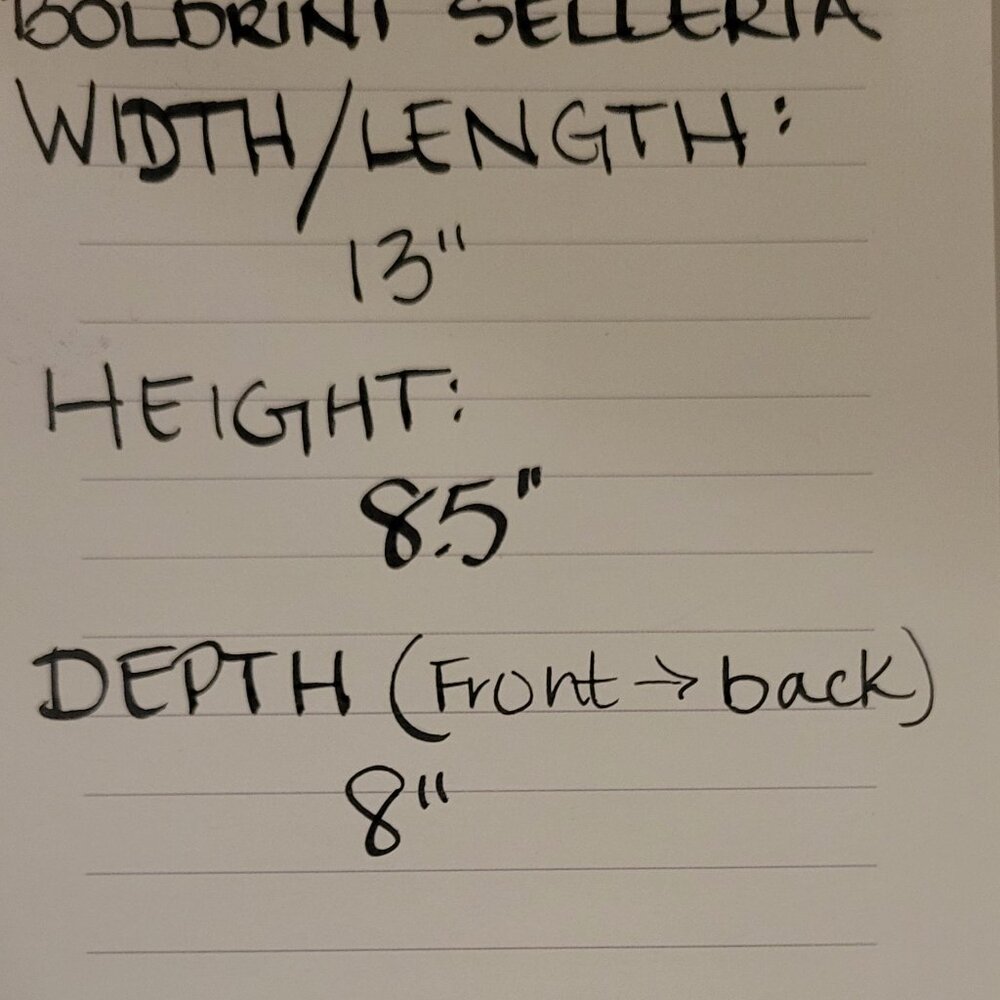 BOLDRINI SELLERIA
WIDTH/LENGTH:
13"
HEIGHT:
8.5"
DEPTH (Front → back)
8"